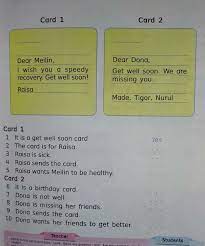 Card 1
Card 2
Dear Meilin,
I wish you a speedy
recovery. Get well soon!
Raisa
Dear Dona,
Get well soon. We are
missing you.
Made, Tigor, Nurul
Card 1
1 It is a get well soon card
2 The card for Raisa.
3 Raisa is sick.
4 Raisa sends the card.
5 Raisa wants Meilin to be healthy.
Card 2
6 It is a birthday card.
7 Dona is not well.
8 Dona is missing her friends.
9 Dona sends the card.
10 Dona wants her friends to get better.
Teacher
Students